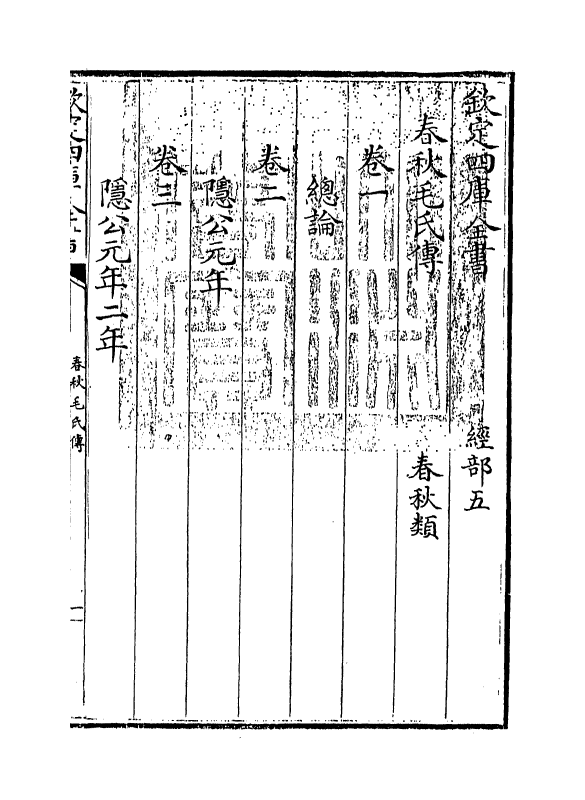 欽定四庫全書 經部五
春秋毛氏傳 春秋類
卷一
總論
卷二
隱公元年
卷三
隱公元年二年
欽定四庫全書
春秋毛氏傳
一